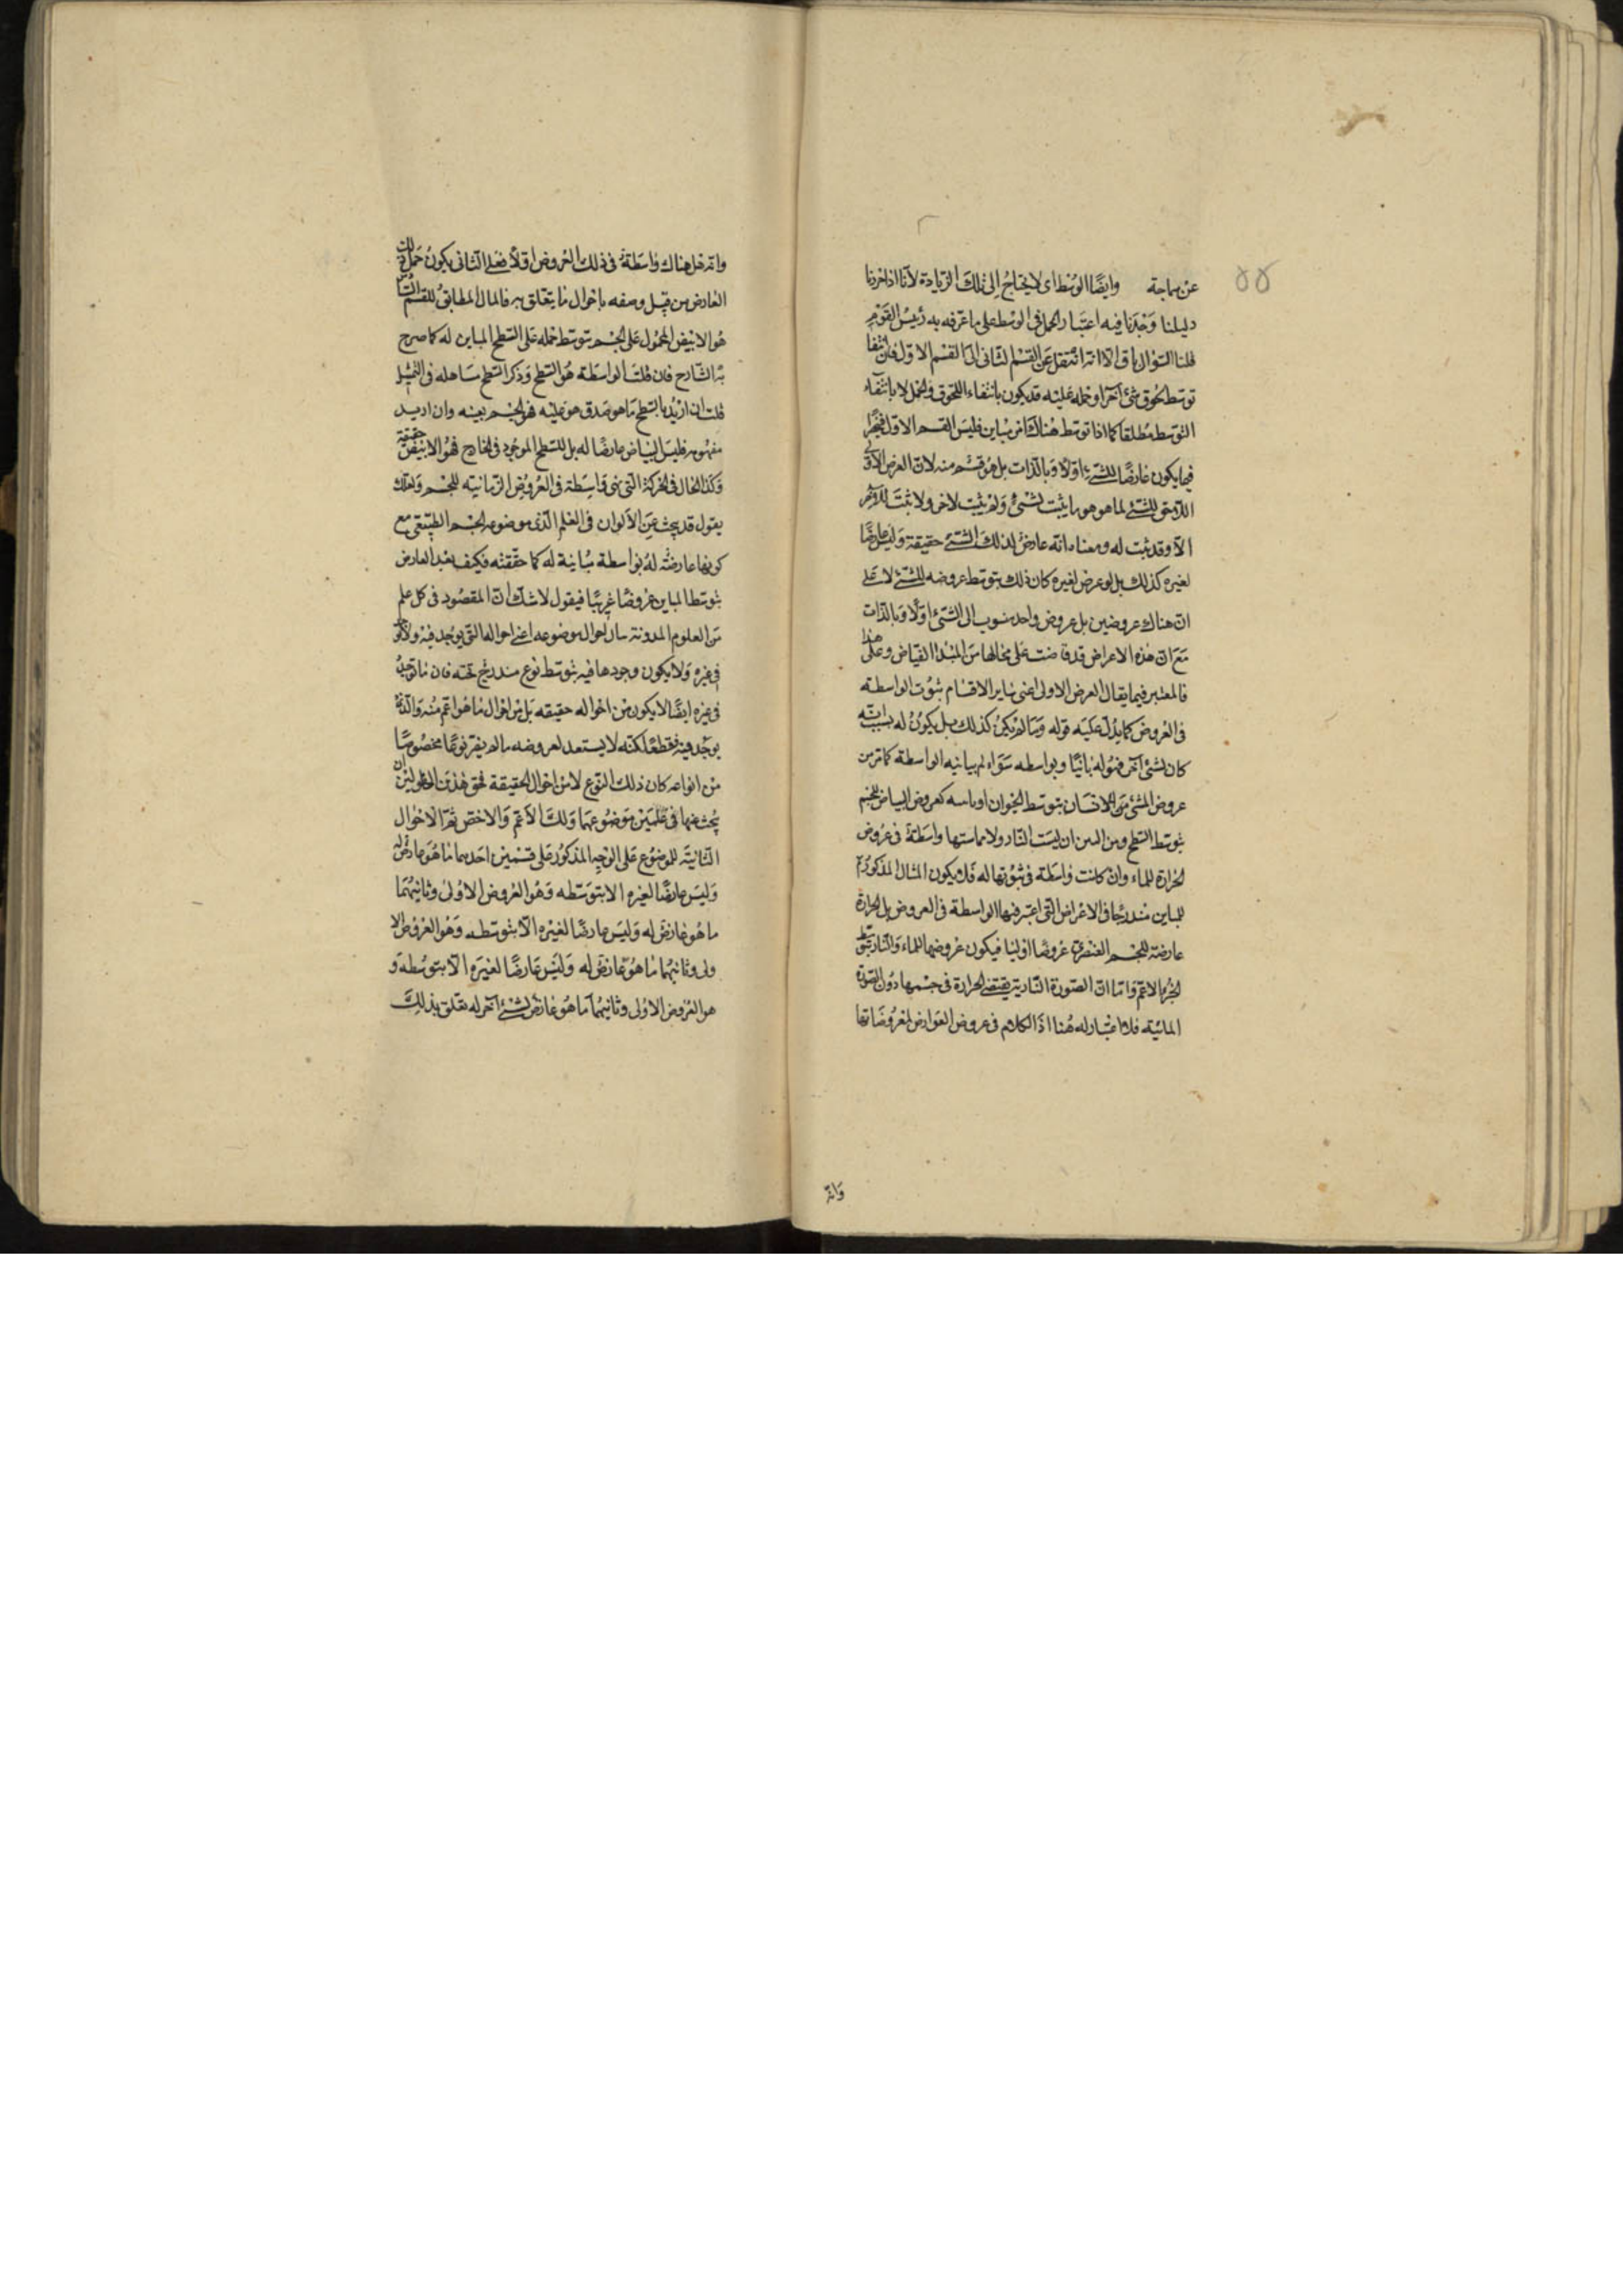 ٥٥
عن سماجة وايضا الوسط اى لا يحتاج الى تلك الزيادة لانا اذا اخذنا
دليلنا وجدنا فيه اعتبار الحمل فى الوسط على ما عرفه به رئيس القوم
قلنا السؤال باق الا انه انتقل عن القسم الثانى الى القسم الاول فان انتفا
توسط لحوق شئ آخر او حمله عليه قد يكون بانتفاء اللحوق والحمل لا بانتفاء
التوسط مطلقا كما اذا توسط هناك امر مباين فليس القسم الاول
فيما يكون عارضا للشئ اولا وبالذات بل هو قسم منه لان العرض الاولى
اللاحق للشئ لما هو هو ما يثبت لشئ ولم يثبت لاخر ولا ثبت للاخر
الا وقد ثبت له ومعناه انه عارض لذلك الشئ حقيقة وليس عارضا
لغيره كذلك بل لو عرض لغيره كان ذلك بتوسط عروضه للشئ لا على
ان هناك عروضين بل عروض واحد منسوب الى الشئ اولا وبالذات
مع ان هذه الاعراض قد فاضت على محالها من المبدا الفياض وعلى هذا
فالمعتبر فيما يقابل العرض الاولى اعنى ساير الاقسام ثبوت الواسطة
فى العروض كما يدل عليه قوله وما لم يكن كذلك بل يكون له بسبب انه
كان لشئ آخر فهو له ثانيا وبواسطه سواء لم يباينه الواسطة كما مر من
عروض المشى للانسان بتوسط الحيوان او باينه كعروض البياض للجسم
بتوسط السطح ومن البين ان ليست النار ولا مماستها واسطة فى عروض
الحرارة للماء وان كانت واسطة فى ثبوتها له فلا يكون المثال المذكور
للمباين مندرجا فى الاعراض التى اعتبر فيها الواسطة فى العروض بل الحرارة
عارضة للجسم العنصرى عروضا اوليا فيكون عروضها للماء والنار بتوسط
الجزء الاعم واما ان الصورة النارية يقتضى الحرارة فى جسمها دون الصورة
المائية فلا اعتبار له هنا اذ الكلام فى عروض العوارض لمعروضاتها
وانه
وانه هل هناك واسطة فى ذلك العروض اولا فعلى الثانى يكون حمل ذلك
العارض من قبيل وصفه باحوال ما يتعلق به فالمثال المطابق للقسم
هو الابيض المحمول على الجسم بتوسط حمله على السطح المباين له كما صرح
به الشارح فان قلت الواسطة هو السطح وذكر السطح مساهله فى التمثيل
قلت ان اريد بالسطح ما هو صدق هو عليه فهو الجسم بعينه وان اريد
مفهومه فليس البياض عارضا له بل للسطح الموجود فى الخارج فهو الابيض حقيقة
وكذا الحال فى الحركة التى هى واسطة فى العروض الزمانيته للجسم ولعلك
يقول قد يبحث عن الالوان فى العلم الذى موضوعه الجسم الطبيعى مع
كونها عارضة له بواسطة مباينة له كما حققته فكيف يعد العارض
بتوسط المباين عروضا غريبا فيقول لا شك ان المقصود فى كل علم
من العلوم المدونة بيان احوال موضوعه اعنى احواله التى يوجد فيه ولا يوجد
فى غيره ولا يكون وجودها فيه بتوسط نوع مندرج تحته فان ما يوجد
فى غيره ايضا لا يكون من احواله حقيقه بل من احوال ما هو اعم منه والذى
يوجد فيه فقط لكنه لا يستعد لعروضه ما لم يصر نوعا مخصوصا
من انواعه كان ذلك النوع لا من احواله الحقيقة فحق هذين الحالين ان
يبحث عنها فى علمين موضوعهما ذلك الاعم والاخص ثم الاحوال
الثابتة للموضوع على الوجه المذكور على قسمين احدهما ما هو عارض له
وليس عارضا لغيره الا بتوسطه وهو العروض الاولى وثانيهما
ما هو عارض له وليس عارضا لغيره الا بتوسطه وهو العروض الا
ولى وثانيهما ما هو عارض له وليس عارضا لغيره الا بتوسطه و
هو العروض الاولى وثانيهما ما هو عارض لشئ آخر له تعلق بذلك